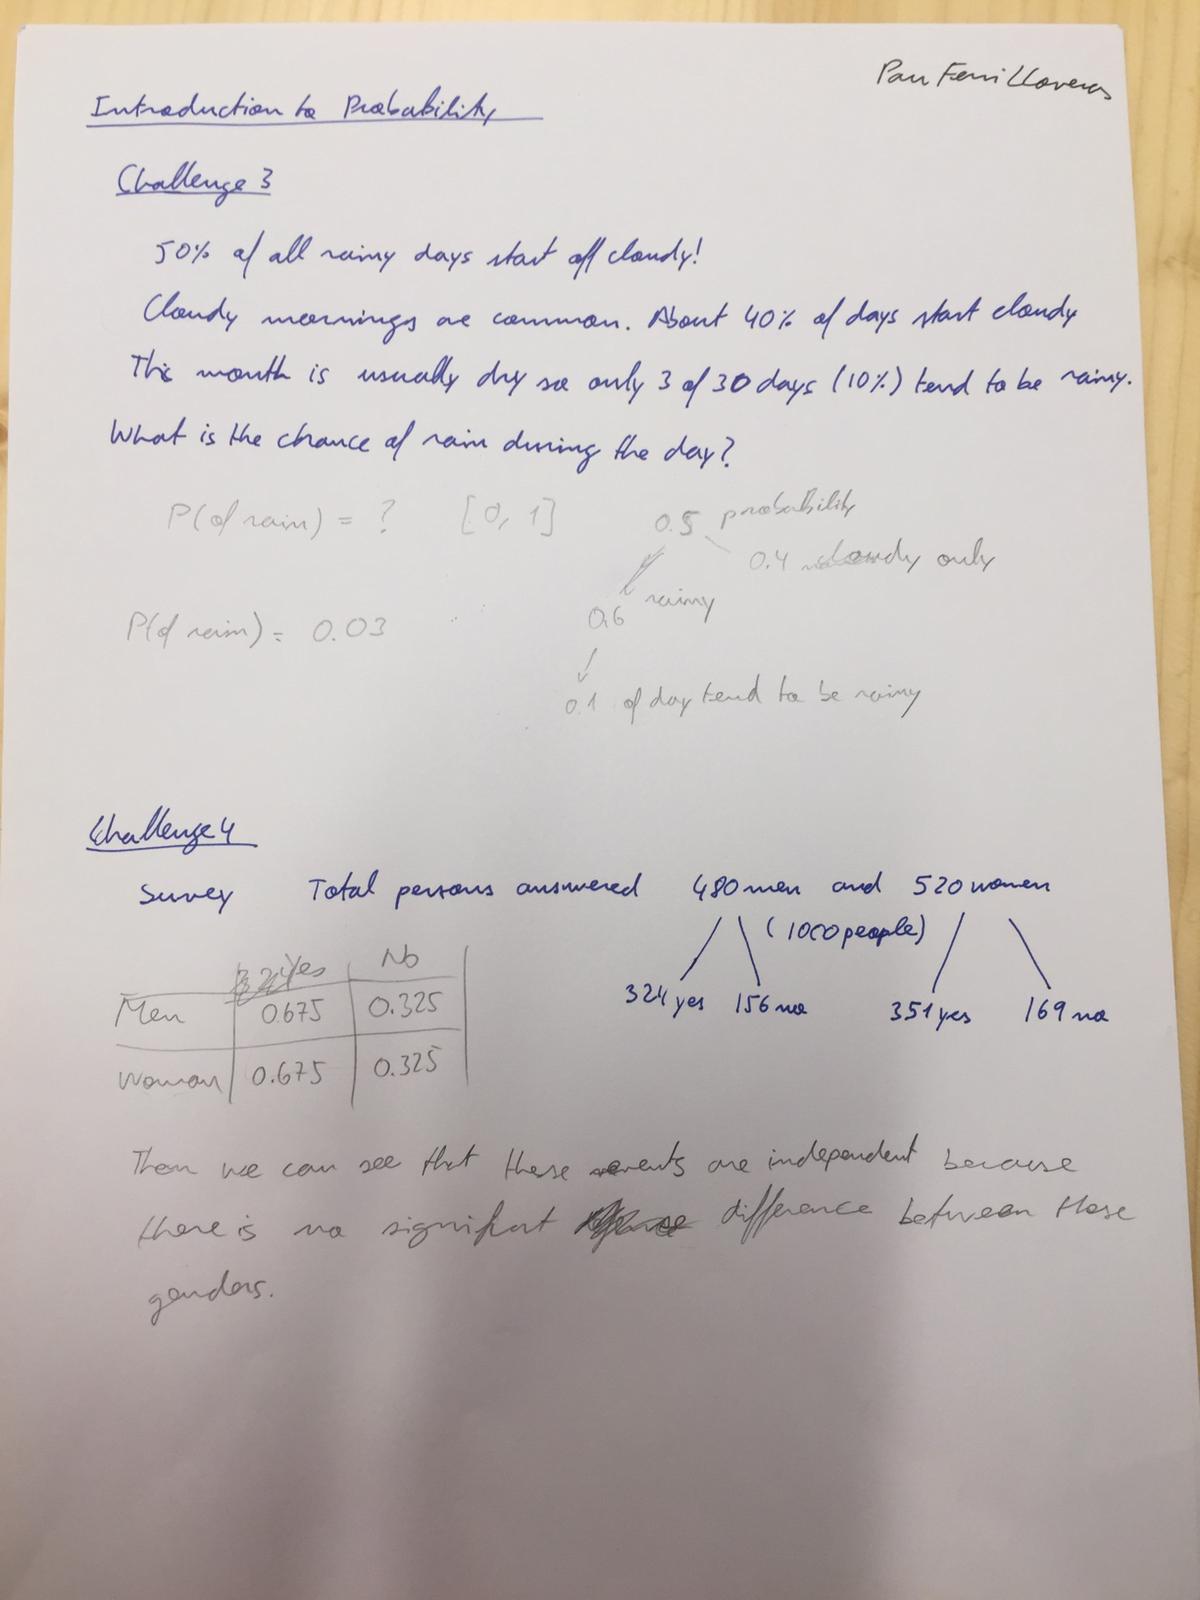 Introduction to Probability
Challenge 3
50% of all rainy days start off cloudy!
Cloudy mornings are common. About 40% of days start cloudy
This month is usually dry so only 3 of 30 days (10%) tend to be rainy.
What is the chance of rain during the day?
P(of rain) = ? [0, 1]
0.5 probability
0.4 cloudy only
0.6 rainy
P(of rain) = 0.03
0.1 of day tend to be rainy
Challenge 4
Survey Total persons answered 480 men and 520 women
(1000 people)
324 yes 156 no 351 yes 169 no
Yes No
Men 0.675 0.325
Woman 0.675 0.325
Then we can see that these events are independent because
there is no signifint difference between those
genders.